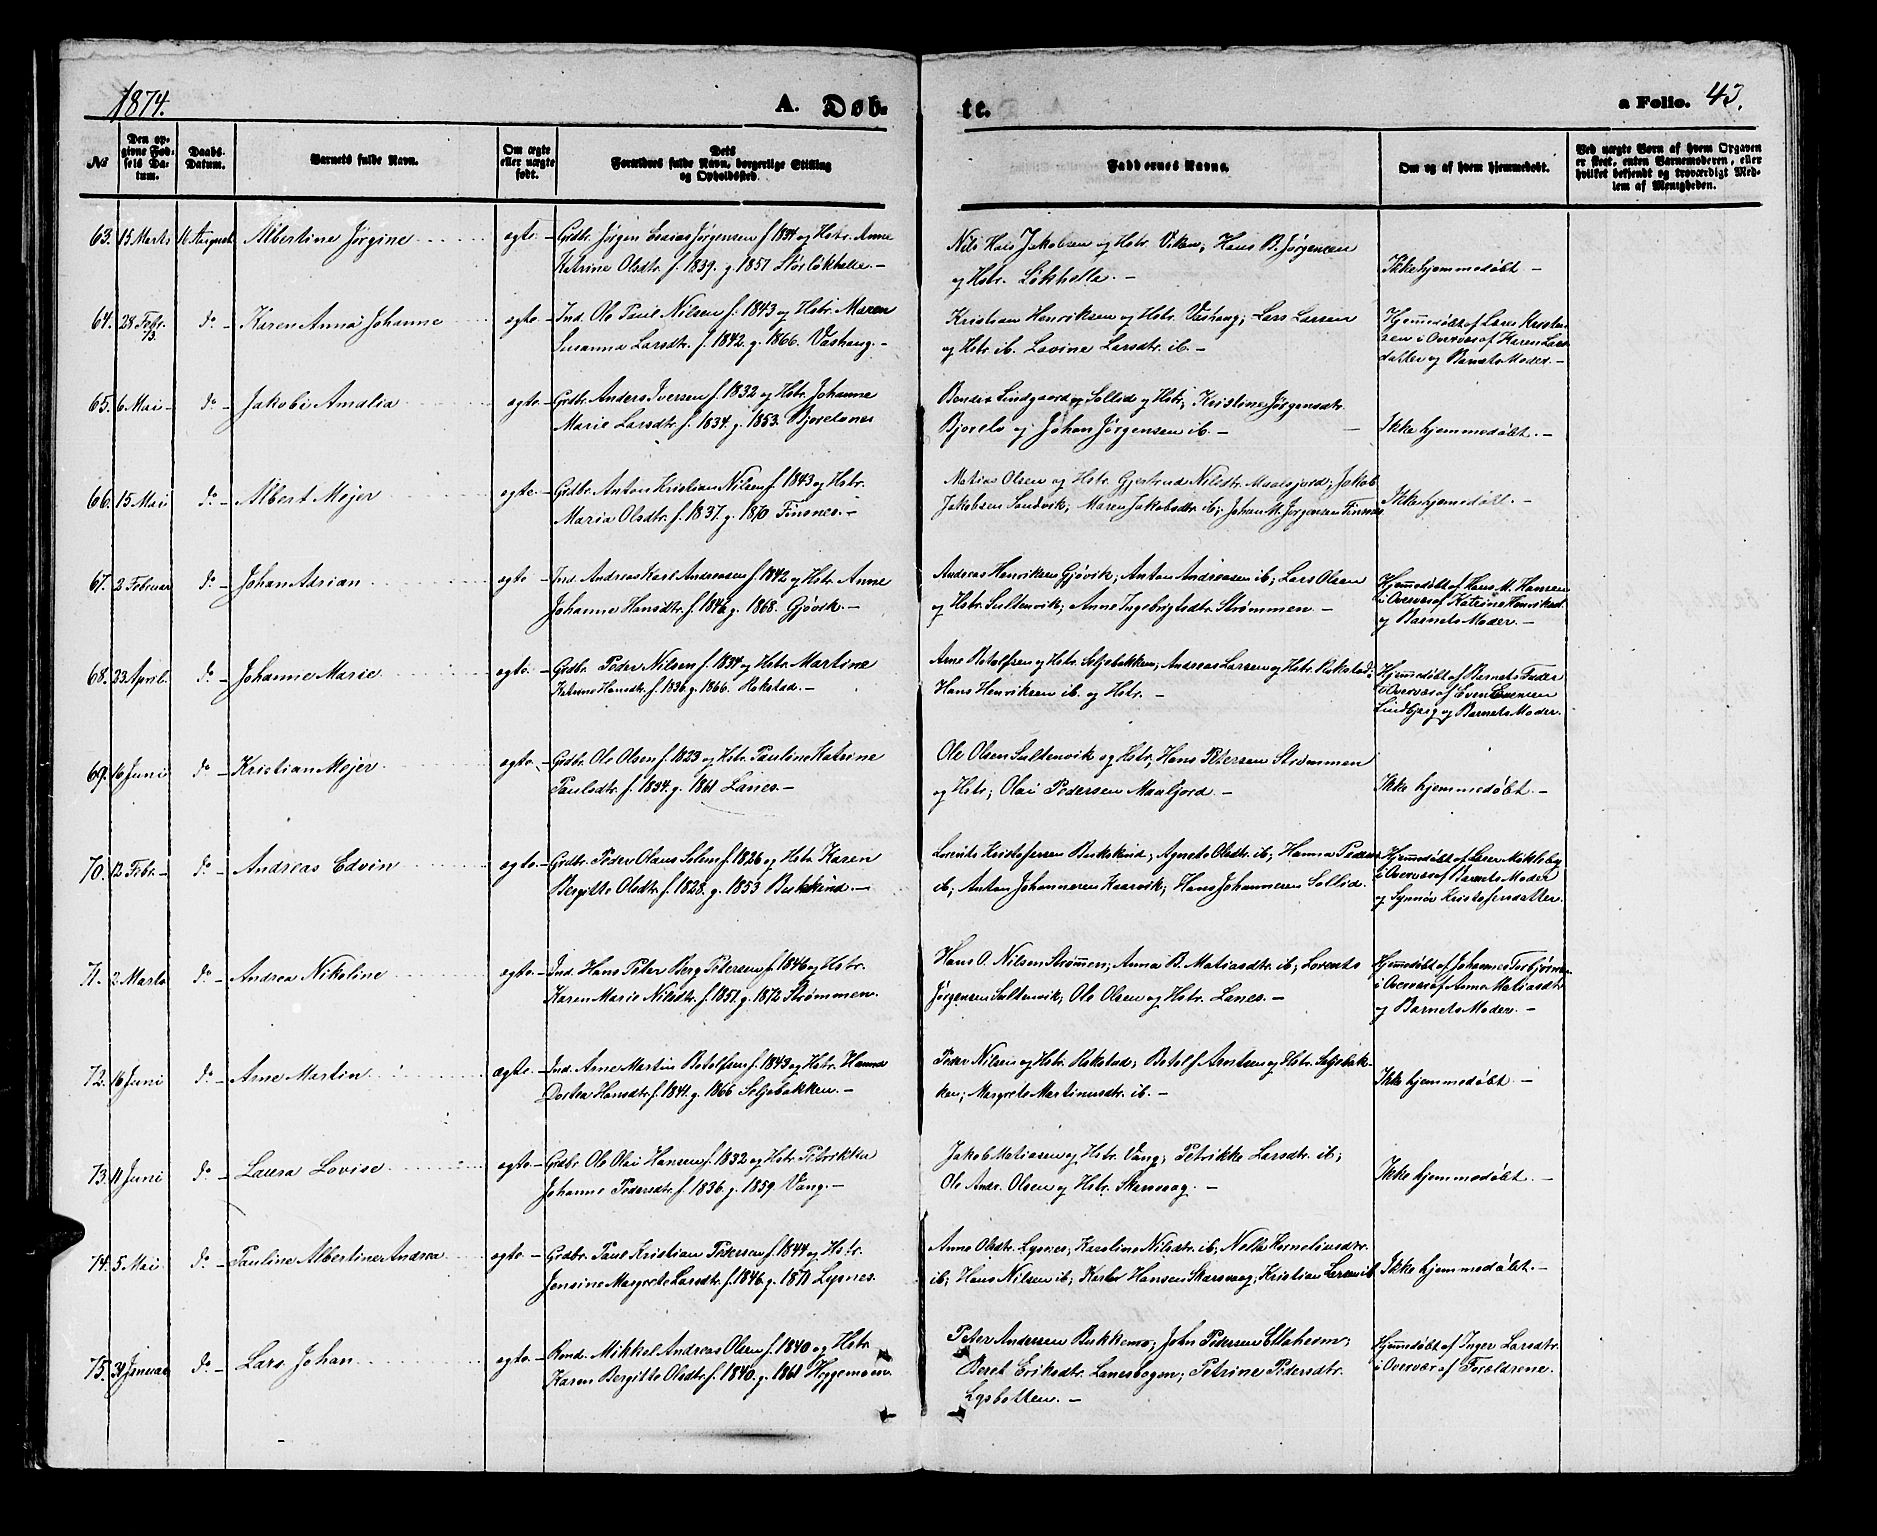 1874.
A. Døb-
te.
a Folio. 43.
No
Den op-
givne Fød-
sels Da-
tum.
Daabs-
Datum.
Barnets fulde Navn.
Om ægte
eller uægte
født.
Dets
Forældres fulde Navn, borgerlige Stilling
og Opholdssted.
Faddernes Navne.
Om og af hvem hjemmedøbt.
Ved uægte Børn af hvem Opgaven
er skeet, enten Barnemoderen, eller
hvilket bekjendt og troværdigt Med-
lem af Menigheden.
63. 15 Marts 16 August Albertine Jørgine ægte. Grdbr. Jørgen Esaias Jørgensen f. 1834 og Hstr. Anne
Katrine Olsdtr. f. 1839. g. 1857 Storløkhelle.
Nils Hals Jakobsen og Hstr. Viken; Hans B. Jørgensen
og Hstr. Løkhelle.
Ikke hjemmedøbt
64. 28 Febr. 73. do Karen Anna Johanne ægte Ind. Ole Paul Nilsen f. 1843 og Hstr. Maren
Susanna Larsdtr. f. 1842. g. 1866. Vashaug.
Kristian Henriksen og Hstr. Vashaug; Lars Larsen
og Hstr. ib. Lovine Larsdtr. ib.
Hjemmedøbt af Lars Kristen-
sen i Overvær af Karen Lars-
datter og Barnets Moder.
65. 6 Mai do Jakobi Amalia ægte Grdbr. Anders Iversen f. 1832 og Hstr. Johanne
Marie Larsdtr. f. 1834. g. 1853. Bjorelvnes
Bonder Lindgaard og Sollid og Hstr; Kristine Jørgensdtr.
Bjorelv og Johan Jørgensen ib.
Ikke hjemmedøbt.
66. 15 Mai do Albert Mejer ægte Grdbr. Anton Kristian Nilsen f. 1843 og Hstr.
Maria Olsdtr. f. 1837. g. 1870 Finsnes.
Matias Olsen og Hstr. Gjertrud Nilsdtr. Maalsjord; Jakob
Jakobsen Sandvik; Maren Jakobsdtr. ib; Johan M. Jørgensen Finsnes
Ikke hjemmedøbt.
67. 2 Februar do Johan Adrian ægte Ind. Andreas Karl Andreasen f. 1842 og Hstr. Anne
Johanne Hansdtr. f. 1846 g. 1868. Gjøvik.
Andreas Henriksen Gjøvik; Anton Andreasen ib; Lars Olsen
og Hstr. Sultenvik; Anne Ingebrigtsdtr. Strømmen.
Hjemmedøbt af Hans M. Hansen
i Overvær af Katrine Henriksd.
og Barnets Moder.
68. 23 April do Johanne Marie ægte. Grdbr. Peder Nilsen f. 1834 og Hstr. Martine
Katrine Hansdtr. f. 1836. g. 1866. Rokstad.
Arne Botolfsen og Hstr. Seljebakken; Andreas Larsen og Hstr. Rokstad;
Hans Henriksen ib. og Hstr.
Hjemmedøbt af Barnets Fader
i Overvær af Even Evensen
Lindbjerg og Barnets Moder.
69. 16 Juni do Kristian Mejer ægte. Grdbr. Ole Olsen f. 1823 og Hstr. Pauline Katrine
Paulsdtr. f. 1834. g. 1861 Lanes.
Ole Olsen Sultenvik og Hstr; Hans Petersen Strømmen
og Hstr; Olai Pedersen Maalsjord.
Ikke hjemmedøbt.
70. 12 Febr. do Andreas Edvin ægte. Grdbr. Peder Olaus Solem f. 1826 og Hstr. Karen
Bergitte Olsdtr. f. 1828. g. 1853 Bukskind.
Lorents Kristofersen Bukskind; Agnete Olsdtr. ib; Hanna Peders
ib; Anton Johannesen Kaarvik; Hans Johannesen Sollid.
Hjemmedøbt af Lars Mækleby
i Overvær af Barnets Moder
og Synnøv Kristofersdatter.
71. 2 Marts do Andrea Nikoline ægte. Ind. Hans Peter Berg Petersen f. 1846 og Hstr.
Karen Marie Nilsdtr. f. 1851. g. 1872 Strømmen.
Hans O. Nilsen Strømmen; Anna B. Matiasdtr. ib; Lorents
Jørgensen Sultenvik; Ole Olsen og Hstr. Lanes.
Hjemmedøbt af Johannes Torbjørnsen
i Overvær af Anna Matiasdtr.
og Barnets Moder.
72. 16 Juni do Arne Martin ægte. Ind. Arne Martin Botolfsen f. 1843 og Hstr. Hanna
Dortea Hansdtr. f. 1841. g. 1866 Seljebakken.
Peder Nilsen og Hstr. Rokstad; Botolf Arntsen og Hstr. Seljebak-
ken; Margrete Martinusdtr. ib.
Ikke hjemmedøbt.
73. 11 Juni do Laura Lovise ægte. Grdbr. Ole Olai Hansen f. 1832 og Hstr. Petrikka
Johanne Pedersdtr. f. 1836. g. 1859 Vang.
Jakob Matiasen og Hstr. Vang; Petrikke Larsdtr. ib;
Ole Andr. Olsen og Hstr. Skarsvag.
Ikke hjemmedøbt.
74. 5 Mai do Pauline Albertine Andrea ægte Grdbr. Paul Kristian Pedersen f. 1844 og Hstr.
Jensine Margrete Larsdtr. f. 1846. g. 1871 Lysnes.
Anne Olsdtr. Lysnes; Karoline Nilsdtr. ib; Nella Korneliusdtr.
ib; Hans Nilsen ib; Hansen Skarsvag; Kristian Larsen ib.
Ikke hjemmedøbt.
75. 30 Januar do Lars Johan ægte. Rond. Mikkel Andreas Olsen f. 1840 og Hstr.
Karen Bergitte Olsdtr. f. 1840. g. 1861 Hyggemoen.
Peter Andersen Bukkemo; John Pedersen Elleheim;
Beret Eriksdtr. Lanesbogen; Petrine Pedersdtr.
Lysbotten.
Hjemmedøbt af Inger Larsdtr.
i Overvær af Forældrene.